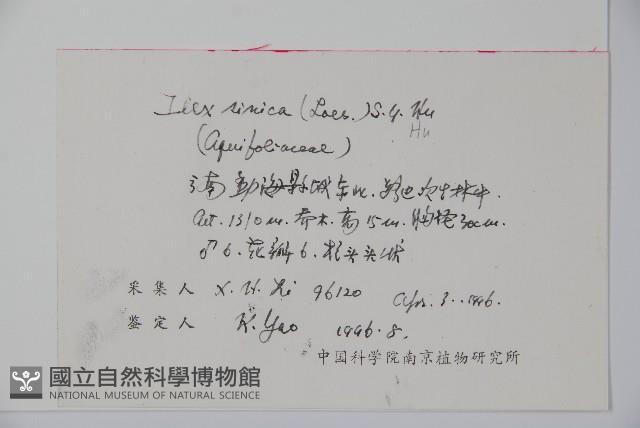 Ilex sinica (Loes.) S.Y. Hu
Hu
(Aquifoliaceae)
云南勐海县城东北. 路边次生林中.
Alt. 1310 m. 乔木. 高15m. 胸径30cm.
♂ 6. 花瓣 6.
采集人 X. W. Li 96120 Apr. 3. 1996.
鉴定人 K. Yao 1996. 8.
中国科学院南京植物研究所
國立自然科學博物館
NATIONAL MUSEUM OF NATURAL SCIENCE